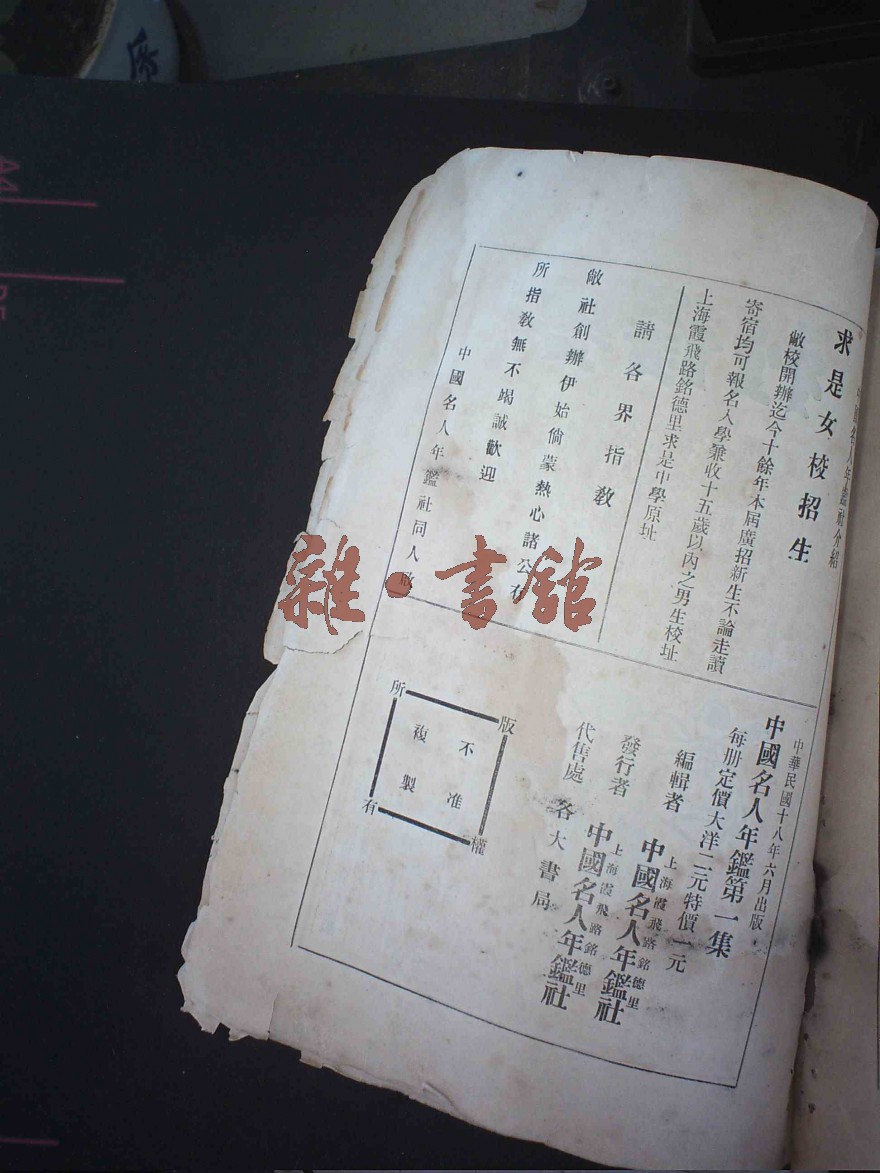 中國名人年鑑社介紹
求是女校招生
敝校開辦迄今十餘年本屆廣招新生不論走讀
寄宿均可報名入學兼收十五歲以內之男生校址
上海霞飛路銘德里求是中學原址
請各界指教
敝社創辦伊始倘蒙熱心諸公有
所指敎無不竭誠歡迎
中國名人年鑑社同人啟
中華民國十八年六月出版
中國名人年鑑第一集
每册定價大洋二元特價一元
編輯者
上海霞飛路銘德里
中國名人年鑑社
發行者
上海霞飛路銘德里
中國名人年鑑社
代售處
各大書局
版權所有
不准複製
雜·書館
A4